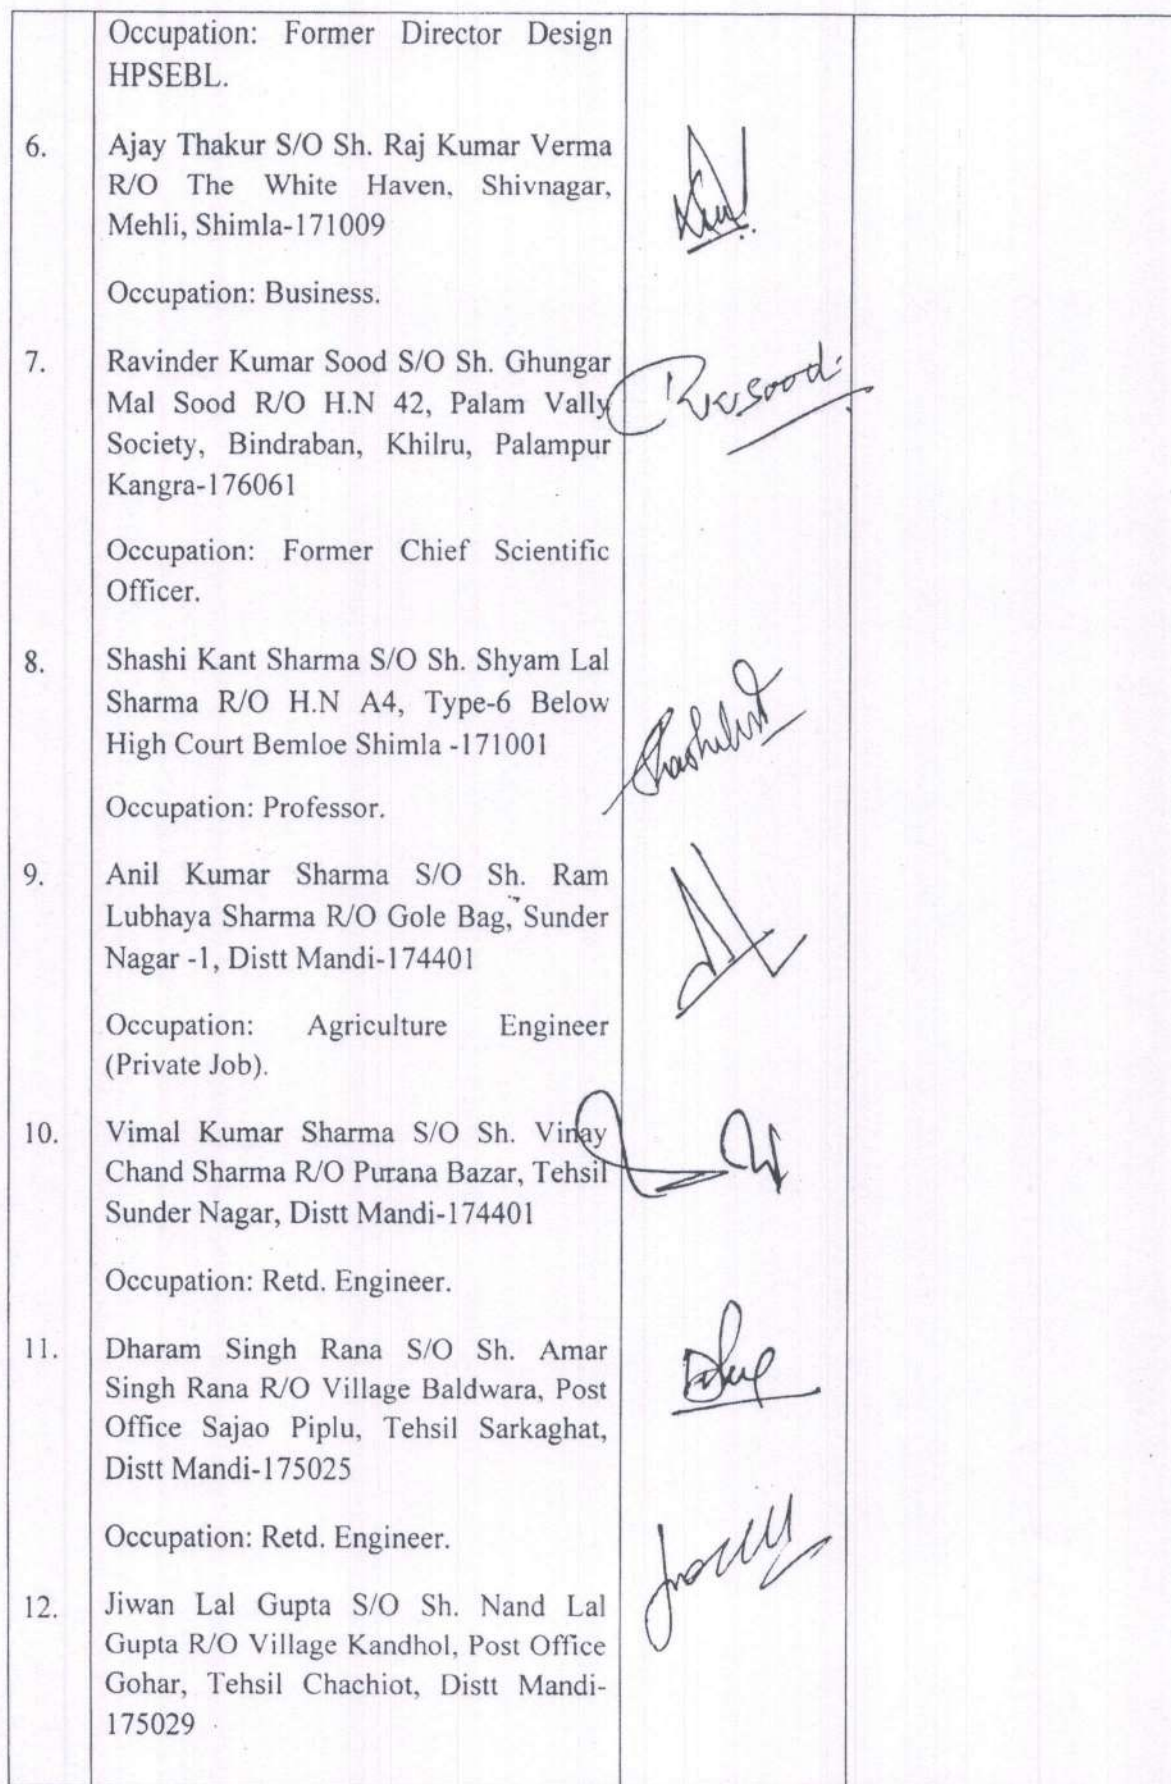 Occupation: Former Director Design
HPSEBL.
6. Ajay Thakur S/O Sh. Raj Kumar Verma
R/O The White Haven, Shivnagar,
Mehli, Shimla-171009
Occupation: Business.
7. Ravinder Kumar Sood S/O Sh. Ghungar
Mal Sood R/O H.N 42, Palam Vally
Society, Bindraban, Khilru, Palampur
Kangra-176061
Rksood
Occupation: Former Chief Scientific
Officer.
8. Shashi Kant Sharma S/O Sh. Shyam Lal
Sharma R/O H.N A4, Type-6 Below
High Court Bemloe Shimla -171001
Occupation: Professor.
9. Anil Kumar Sharma S/O Sh. Ram
Lubhaya Sharma R/O Gole Bag, Sunder
Nagar -1, Distt Mandi-174401
Occupation: Agriculture Engineer
(Private Job).
10. Vimal Kumar Sharma S/O Sh. Vinay
Chand Sharma R/O Purana Bazar, Tehsil
Sunder Nagar, Distt Mandi-174401
Occupation: Retd. Engineer.
11. Dharam Singh Rana S/O Sh. Amar
Singh Rana R/O Village Baldwara, Post
Office Sajao Piplu, Tehsil Sarkaghat,
Distt Mandi-175025
Occupation: Retd. Engineer.
12. Jiwan Lal Gupta S/O Sh. Nand Lal
Gupta R/O Village Kandhol, Post Office
Gohar, Tehsil Chachiot, Distt Mandi-
175029